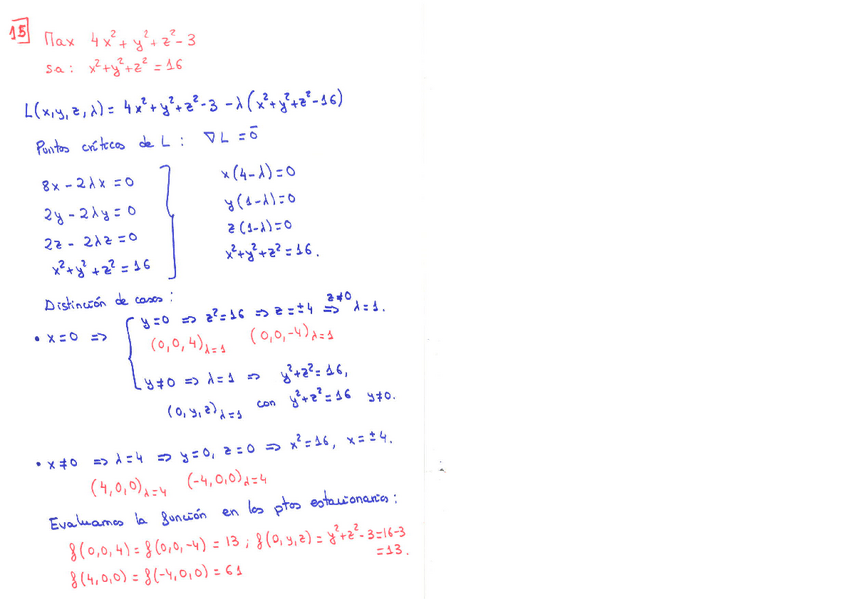 15
Max 4x² + y² + z² - 3
sa: x² + y² + z² = 16
L(x,y,z,λ) = 4x² + y² + z² - 3 - λ(x² + y² + z² - 16)
Puntos críticos de L: ∇L = 0̄
8x - 2λx = 0 x(4-λ) = 0
2y - 2λy = 0 y(1-λ) = 0
2z - 2λz = 0 z(1-λ) = 0
x² + y² + z² = 16 x² + y² + z² = 16.
Distinción de casos:
• x=0 ⇒ { y=0 ⇒ z² = 16 ⇒ z = ±4 ⇒ (z≠0) λ=1.
(0,0,4)λ=1 (0,0,-4)λ=1
y≠0 ⇒ λ=1 ⇒ y² + z² = 16,
(0,y,z)λ=1 con y² + z² = 16 y≠0.
• x≠0 ⇒ λ=4 ⇒ y=0, z=0 ⇒ x² = 16, x = ±4.
(4,0,0)λ=4 (-4,0,0)λ=4
Evaluamos la función en los ptos estacionarios:
f(0,0,4) = f(0,0,-4) = 13; f(0,y,z) = y² + z² - 3 = 16-3
= 13.
f(4,0,0) = f(-4,0,0) = 61